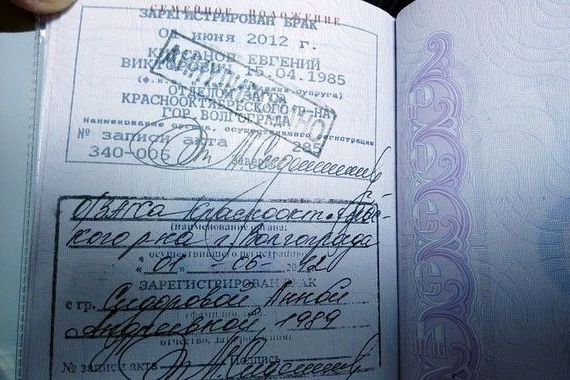 СЕМЕЙНОЕ ПОЛОЖЕНИЕ
ЗАРЕГИСТРИРОВАН БРАК
01 ИЮНЯ 2012 г.
ЕВГЕНИЙ
15.04.1985
ОТДЕЛОМ ЗАГСА
КРАСНООКТЯБРЬСКОГО Р-НА
ГОР. ВОЛГОГРАДА
Наименование органа, осуществившего регистрацию
№ записи акта 285
340-006
ОЗАГСа Краснооктябрьс-
кого р-на г. Волгограда
(наименование органа,
осуществившего регистрацию)
"01" -06- 2012
ЗАРЕГИСТРИРОВАН БРАК
с гр. Сидоровой Анной
Андреевной, 1989
отчество, дата рождения)
№ записи акта Подпись